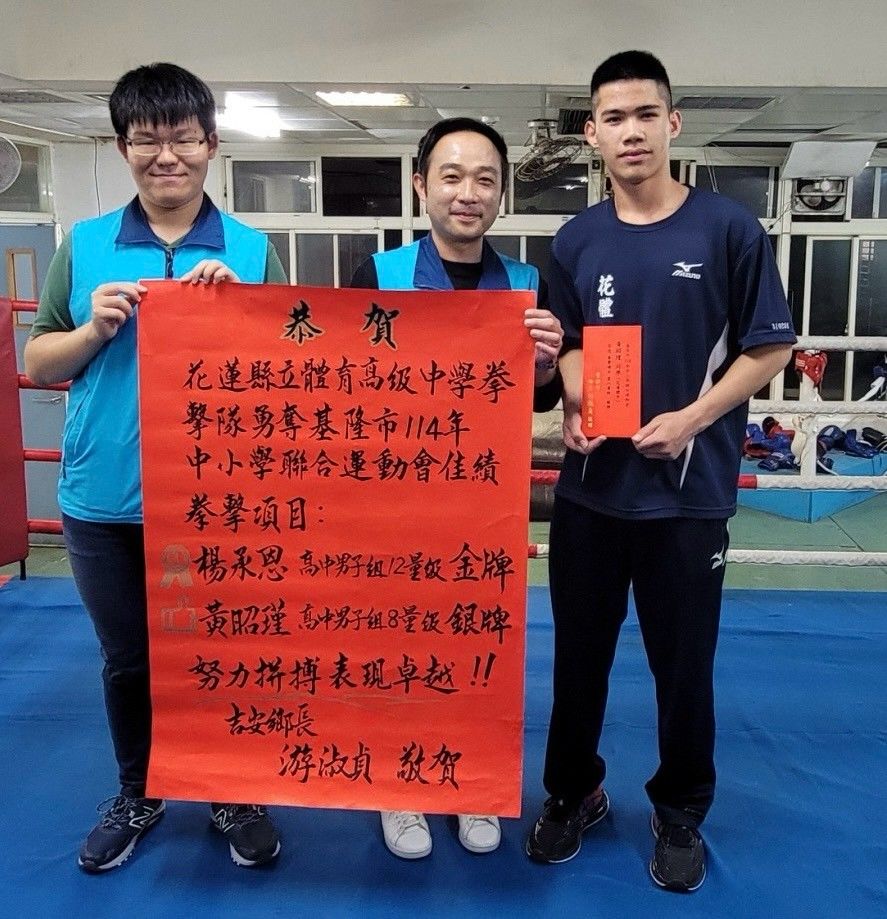 恭賀
花蓮縣立體育高級中學拳
擊隊勇奪基隆市114年
中小學聯合運動會佳績
拳擊項目：
楊承恩 高中男子組12量級 金牌
黃昭瑾 高中男子組8量級 銀牌
努力拼搏表現卓越!!
吉安鄉長
游淑貞 敬賀
花體
MIZUNO